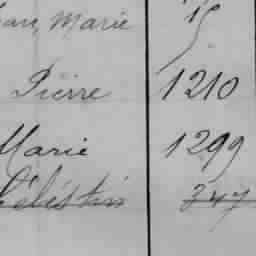 Marie 15
Pierre 1210
Marie 1299
Célestin 347